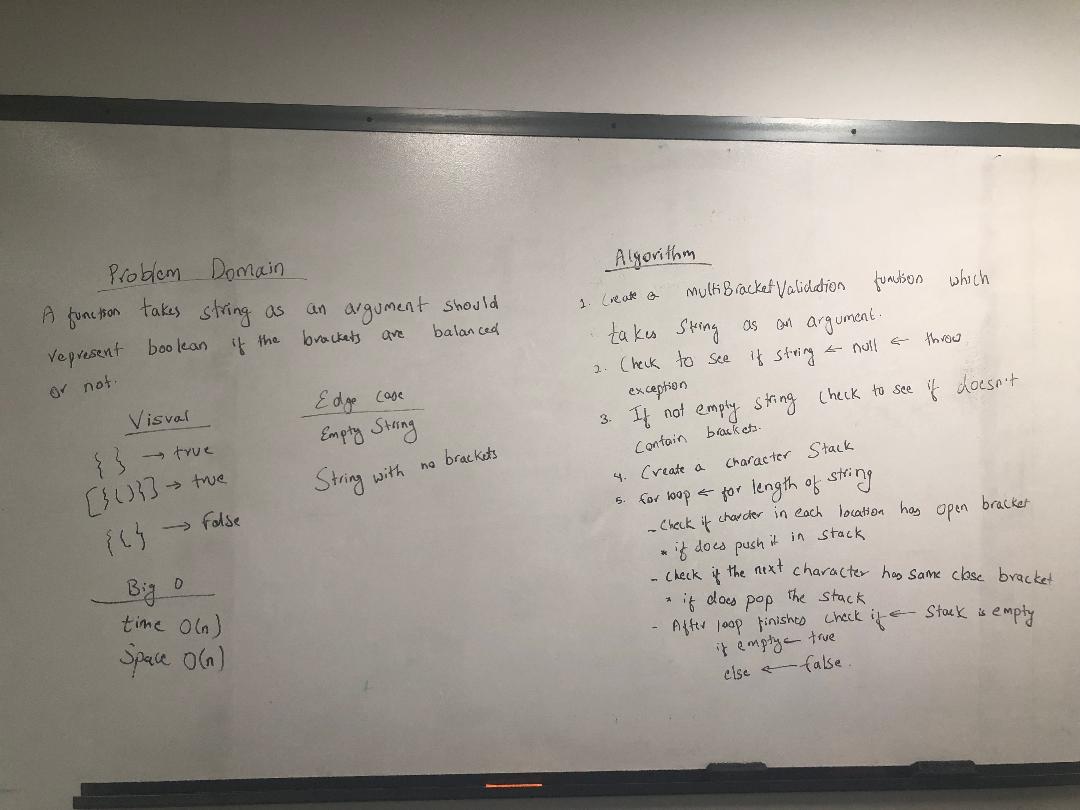 Problem Domain
A function takes string as an argument should
represent boolean if the brackets are balanced
or not.
Visual
{ } → true
[{()}] → true
{(} → false
Big O
time O(n)
Space O(n)
Edge Case
Empty String
String with no brackets
Algorithm
1. Create a multiBracketValidation function which
takes String as an argument.
2. Check to see if string ← null ← throw
exception
3. If not empty string check to see if doesn't
contain brackets.
4. Create a character Stack
5. for loop ← for length of string
- Check if charcter in each location has open bracket
* if does push it in stack
- check if the next character has same close bracket
* if does pop the stack
- After loop finishes check if ← Stack is empty
if empty ← true
else ← false.